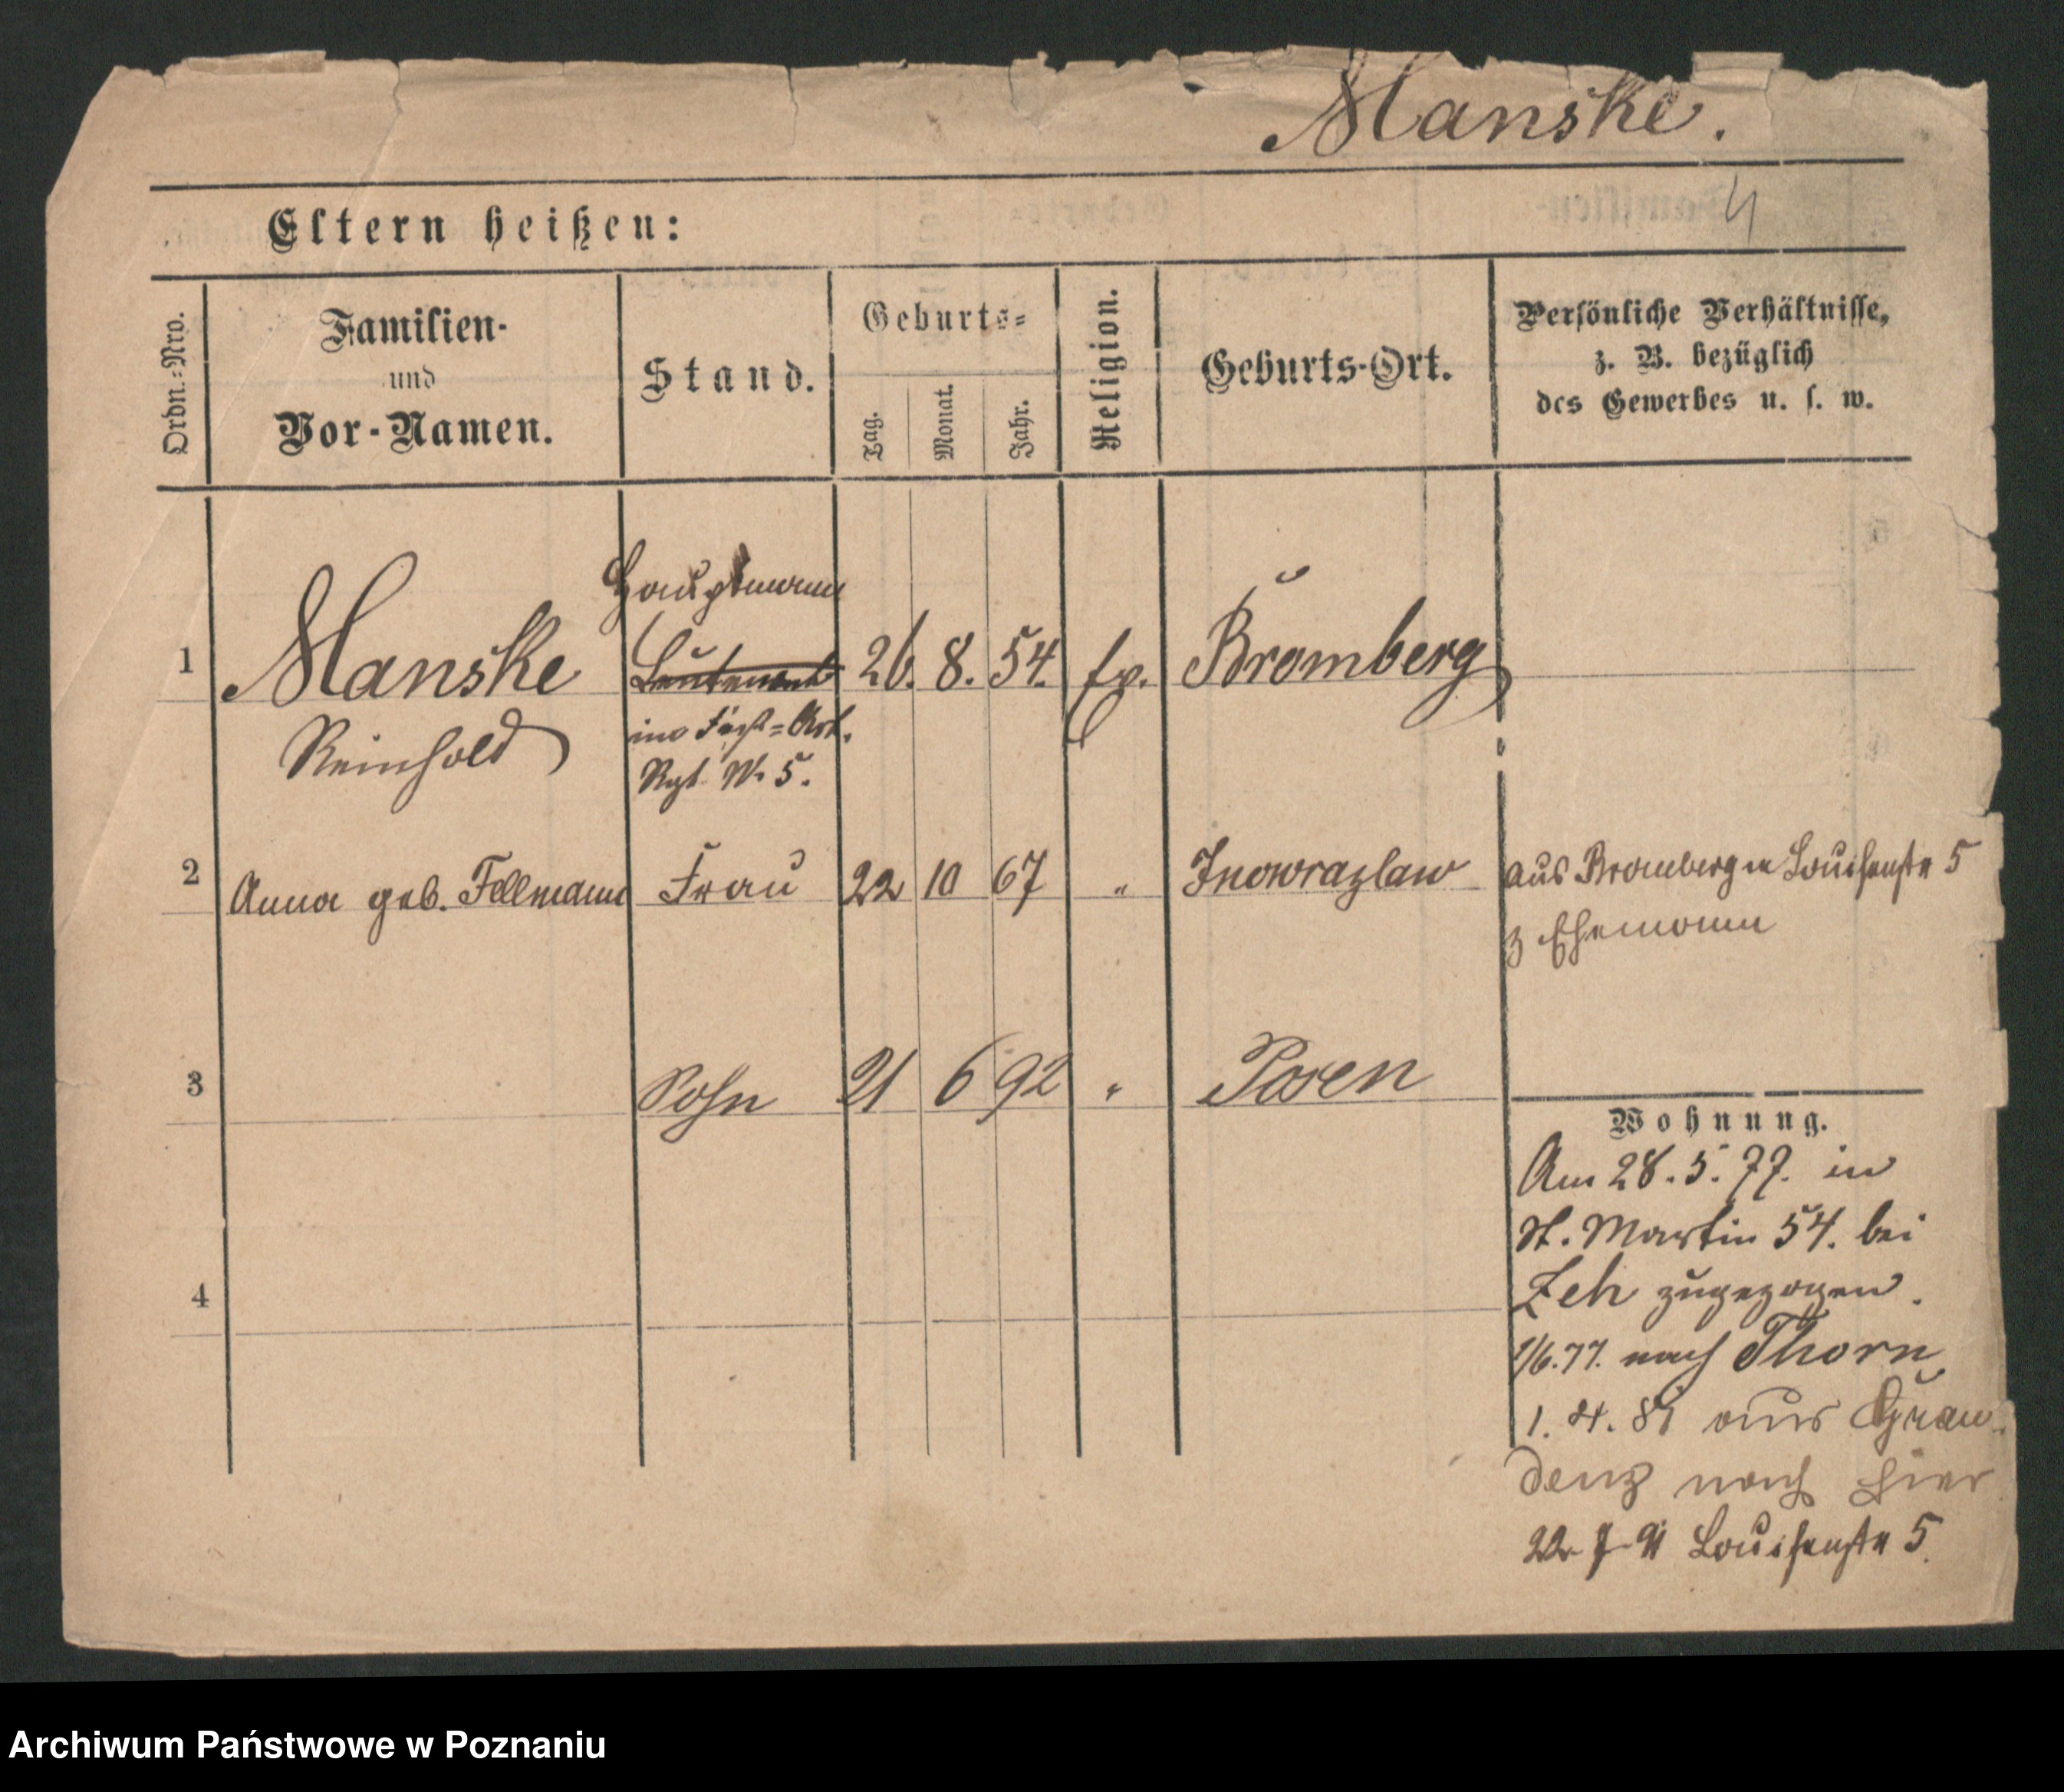 Manske.
4
Eltern heißen:
Ordn.=Nro.
Familien-
und
Vor-Namen.
Stand.
Geburts=
Tag.
Monat.
Jahr.
Religion.
Geburts-Ort.
Persönliche Verhältnisse,
z. B. bezüglich
des Gewerbes u. s. w.
Hauptmann
1 Manske Leutenant 26. 8. 54. ev. Bromberg
Reinhold im Fuß=Art.
Rgt. No 5.
2 Anna geb. Fellmann Frau 22 10 67 " Inowrazlaw aus Bromberg in Louisenstr 5
z Ehemann
3 Sohn 21 6 92 " Posen
Wohnung.
Am 28. 5. 77. in
St. Martin 54. bei
Zeh zugezogen.
1/6. 77. nach Thorn
1. 4. 89 aus Grau-
denz nach hier
22 7 91 Louisenstr 5.
4
Archiwum Państwowe w Poznaniu